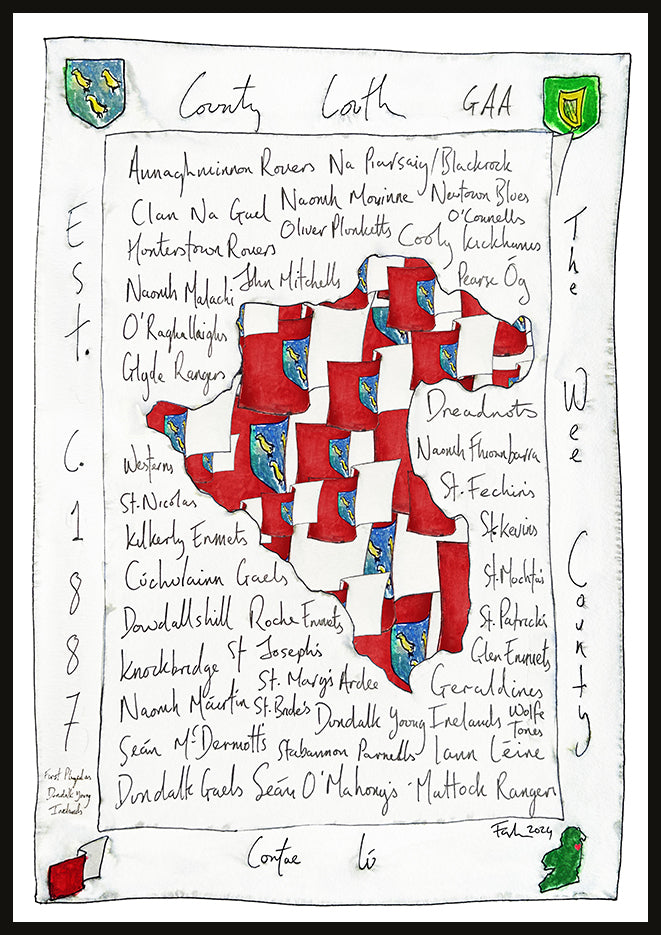 County Louth GAA
Est. C. 1887
The Wee County
Annaghminnon Rovers Na Piarsaig/Blackrock
Clan Na Gael Naomh Moninne Newtown Blues
Oliver Plunketts O'Connells
Hunterstown Rovers Cooly Kickhams
Naomh Malachi John Mitchells Pearse Óg
O'Raghallaighs
Glyde Rangers
Dreadnots
Westerns Naomh Fhionnbarra
St. Nicolas St. Fechin's
Kilkerly Emmets St. Kevins
Cúchulainn Gaels St. Mochta's
Dowdallshill Roche Emmets St. Patrick's
Knockbridge St Joseph's Glen Emmets
St. Mary's Ardee Geraldines
Naomh Máirtín St. Bride's Dundalk Young Irelands Wolfe Tones
Seán McDermott's Stabannon Parnells Lann Léire
Dundalk Gaels Seán O'Mahony's Mattock Rangers
First Played as
Dundalk Young
Irelands
2024
Contae Lú